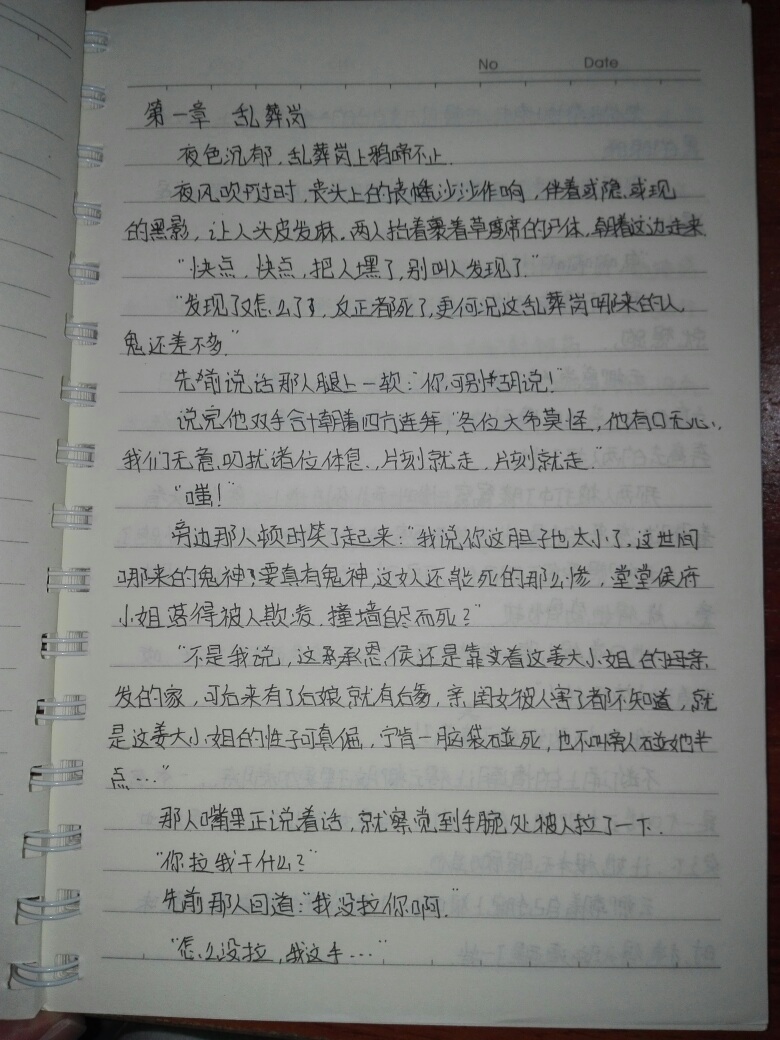 No Date
第一章 乱葬岗
夜色沉郁,乱葬岗上鸦啼不止.
夜风吹过时,丧头上的丧幡沙沙作响,伴着或隐或现
的黑影,让人头皮发麻.两人抬着裹着草席的尸体,朝着这边走来
“快点,快点,把人埋了,别叫人发现了.”
“发现了又怎么了,反正都死了,更何况这乱葬岗哪来的人
鬼还差不多.”
先前说话那人腿上一软:“你,可别胡说!”
说完他双手合十朝着四方连拜,“各位大爷莫怪,他有口无心,
我们无意叨扰诸位休息,片刻就走,片刻就走.”
“嗤!”
旁边那人顿时笑了起来:“我说你这胆子也太小了,这世间
哪来的鬼神?要真有鬼神,这女人还能死的那么惨,堂堂侯府
小姐落得被人欺凌,撞墙自尽而死?”
“不是我说,这承恩侯还是靠着这姜大小姐的母亲
发的家,可后来有了后娘就有后爹,亲闺女被人害了都不知道,就
是这姜大小姐的性子可真倔,宁肯一脑袋碰死,也不叫旁人碰她半
点…”
那人嘴里正说着话,就察觉到手腕处被人拉了一下.
“你拉我干什么?”
先前那人回道:“我没拉你啊.”
“怎么没拉,我这手…”